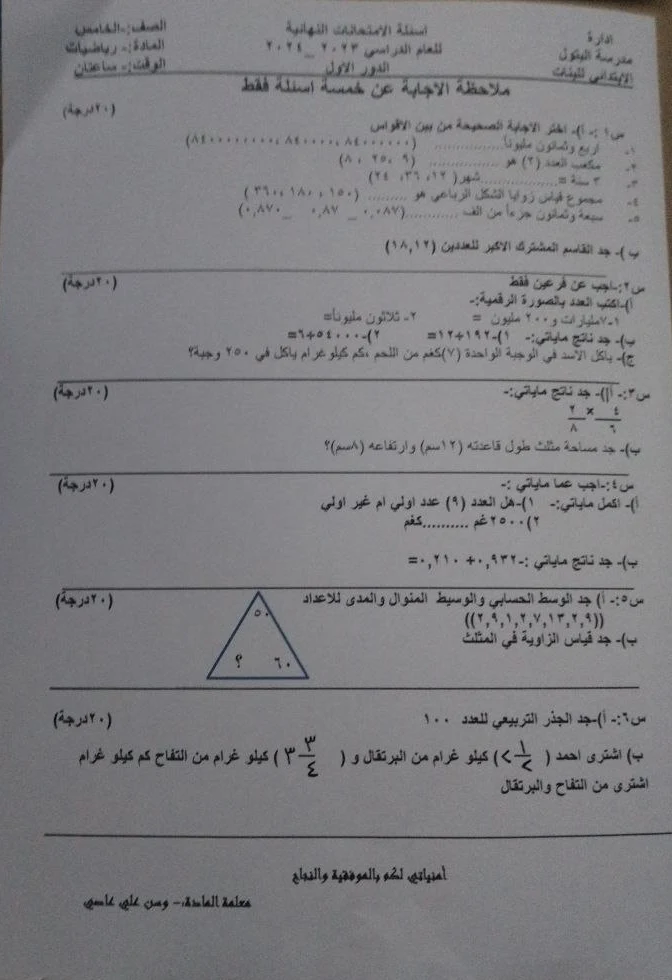 ادارة
مدرسة البتول
الابتدائي للبنات
اسئلة الامتحانات النهائية
للعام الدراسي ٢٠٢٣ _ ٢٠٢٤
الدور الاول
الصف:-الخامس
المادة:- رياضيات
الوقت:- ساعتان
ملاحظة الاجابة عن خمسة اسئلة فقط
س١ :- أ)- اختر الاجابة الصحيحة من بين الاقواس (٢٠درجة)
١- اربع وثمانون مليوناً............... (٨٤٠٠٠٠٠٠ ،٨٤٠٠٠٠ ،٨٤٠٠٠٠٠٠٠٠)
٢- مكعب العدد (٢) هو ............... (٩ ،٢٥ ،٨)
٣- ٣ سنة =...............شهر( ١٢، ٣٦، ٢٤)
٤- مجموع قياس زوايا الشكل الرباعي هو ......... (١٥٠ ، ١٨٠ ،٣٦٠ )
٥- سبعة وثمانون جزءاً من الف ...........(٠,٠٨٧ _ ٠,٨٧ _ ٠,٨٧٠)
ب )- جد القاسم المشترك الاكبر للعددين (١٨,١٢)
س٢:-اجب عن فرعين فقط (٢٠درجة)
أ)-اكتب العدد بالصورة الرقمية:-
١-٧مليارات و٢٠٠ مليون = ٢- ثلاثون مليوناً=
ب)- جد ناتج ماياتي:- ١)-١٩٢÷١٢= ٢)-٥٤٠٠٠÷٦=
ج)- ياكل الاسد في الوجبة الواحدة (٧)كغم من اللحم ،كم كيلو غرام ياكل في ٢٥٠ وجبة؟
س٣:- أ)- جد ناتج ماياتي:- (٢٠درجة)
٤/٦ × ٢/٨
ب)- جد مساحة مثلث طول قاعدته (١٢سم) وارتفاعه (٨سم)؟
س٤:-اجب عما ماياتي :- (٢٠درجة)
أ)- اكمل ماياتي:- ١)-هل العدد (٩) عدد اولي ام غير اولي
٢)٢٥٠٠غم ..........كغم
ب)- جد ناتج ماياتي :-٠,٩٣٢+ ٠,٢١٠=
س٥:- أ) جد الوسط الحسابي والوسيط المنوال والمدى للاعداد (٢٠درجة)
((٢,٩,١,٢,٧,١٣,٢,٩))
ب)- جد قياس الزاوية في المثلث
٥٠
؟ ٦٠
س٦:- أ)-جد الجذر التربيعي للعدد ١٠٠ (٢٠درجة)
ب) اشترى احمد ( ٢ ١/٢ ) كيلو غرام من البرتقال و ( ٣ ٣/٤ ) كيلو غرام من التفاح كم كيلو غرام
اشترى من التفاح والبرتقال
أمنياتي لكم بالموفقية والنجاح
معلمة المادة:- وسن علي عاصي